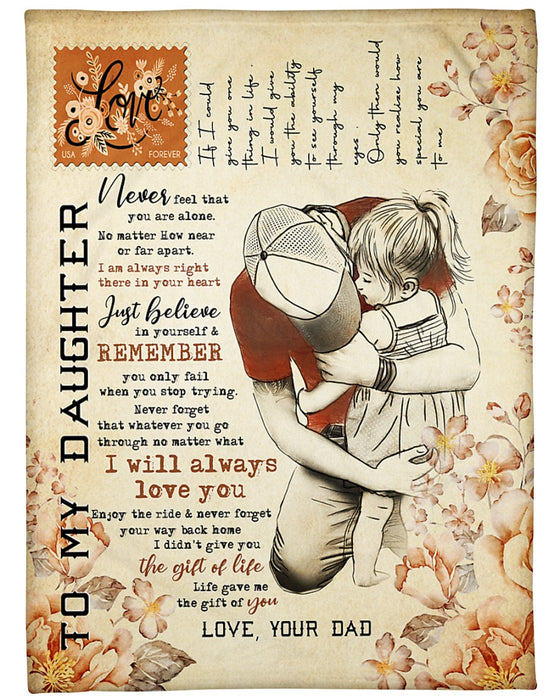 Love
USA FOREVER
If I could
give you one
thing in life.
I would give
you the ability
to see yourself
through my
eyes.
Only then would
you realize how
special you are
to me
TO MY DAUGHTER
Never feel that
you are alone.
No matter How near
or far apart.
I am always right
there in your heart
Just believe
in yourself &
REMEMBER
you only fail
when you stop trying.
Never forget
that whatever you go
through no matter what
I will always
love you
Enjoy the ride & never forget
your way back home
I didn't give you
the gift of life
Life gave me
the gift of you
LOVE, YOUR DAD